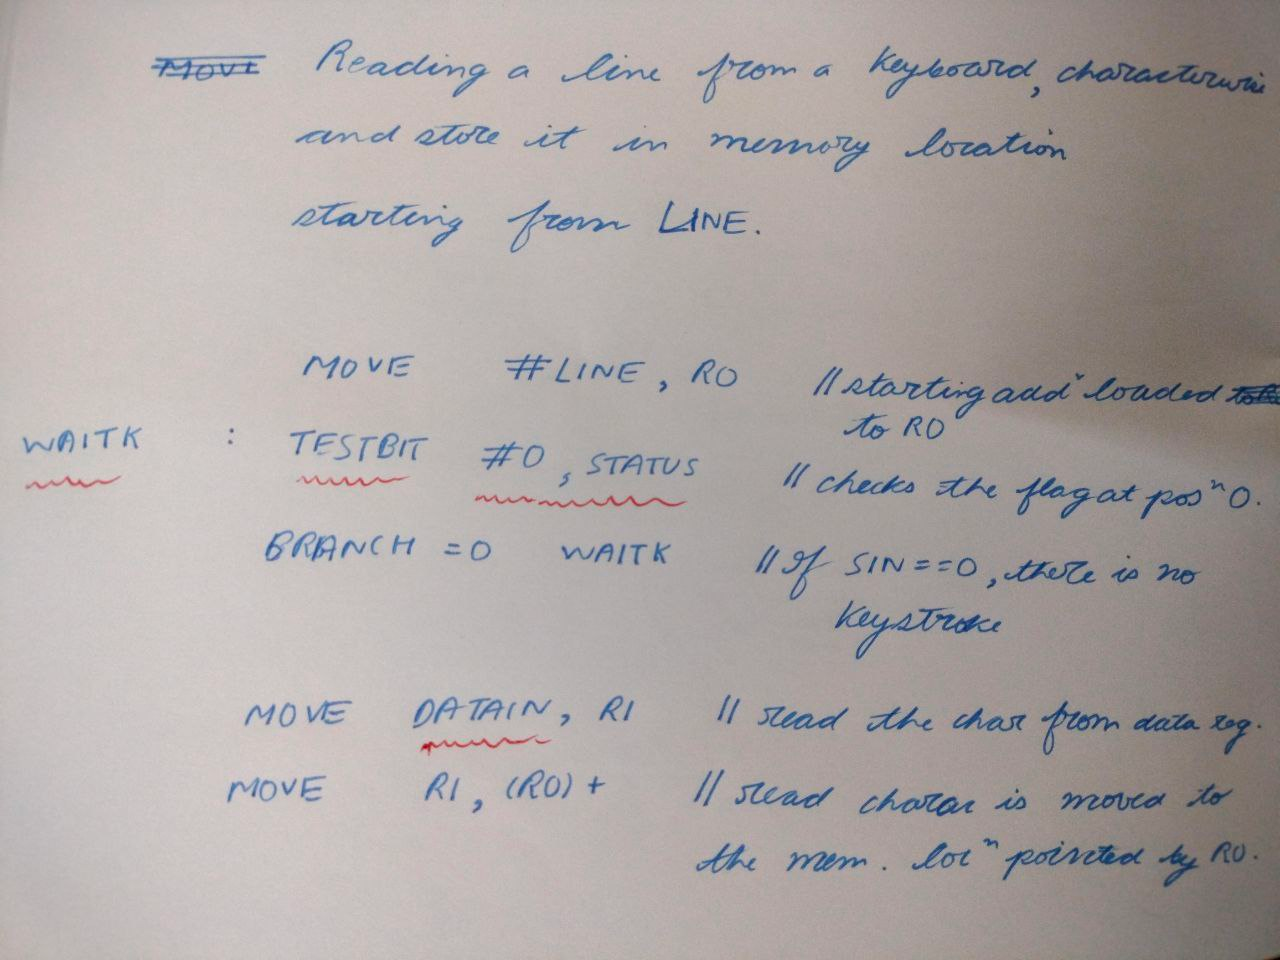 Reading a line from a keyboard, characterwise
and store it in memory location
starting from LINE.
MOVE #LINE, R0 // starting addr loaded
to R0
WAITK : TESTBIT #0, STATUS // checks the flag at posn 0.
BRANCH =0 WAITK // If SIN==0, there is no
keystroke
MOVE DATAIN, R1 // read the char from data reg.
MOVE R1, (R0)+ // read charac is moved to
the mem. locn pointed by R0.